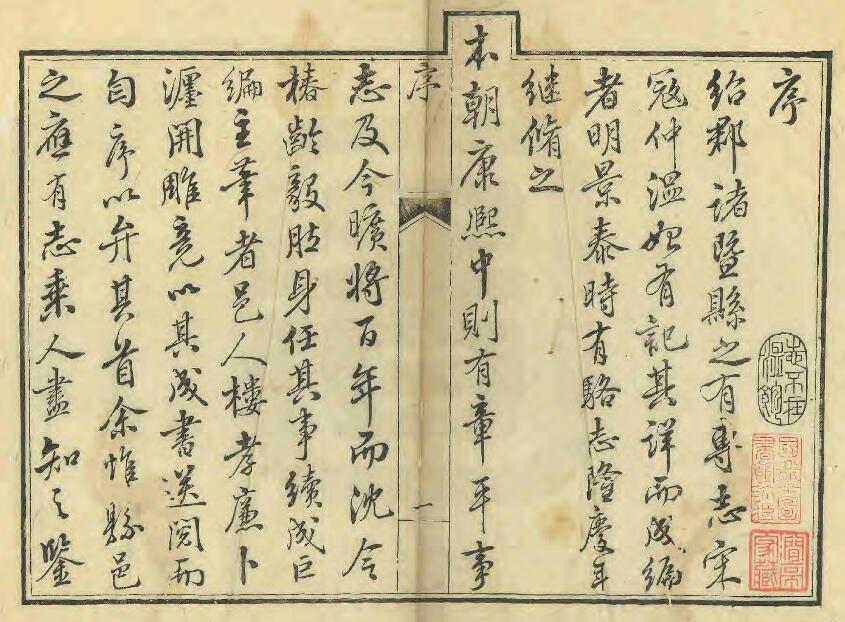 序
紹郡諸暨縣之有專志宋
寇仲溫始有記其詳而成編
者明景泰時有駱志隆慶年
继脩之
本朝康熙中則有章平事
序
一
志及今曠將百年而沈令
椿齡毅肰身任其事續成巨
編主筆者邑人樓孝廉卜
瀍開雕竟以其成書送閱而
匄序以弁其首余惟縣邑
之應有志乘人盡知之鑒
志不在温飽